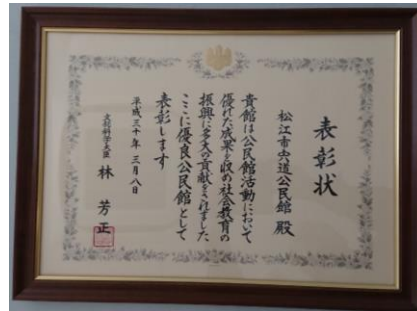 表彰状
松江市宍道公民館 殿
貴館は公民館活動において
優れた成果を収め社会教育の
振興に多大の貢献をされました
ここに優良公民館として
表彰します
平成三十年三月八日
文部科学大臣 林 芳正